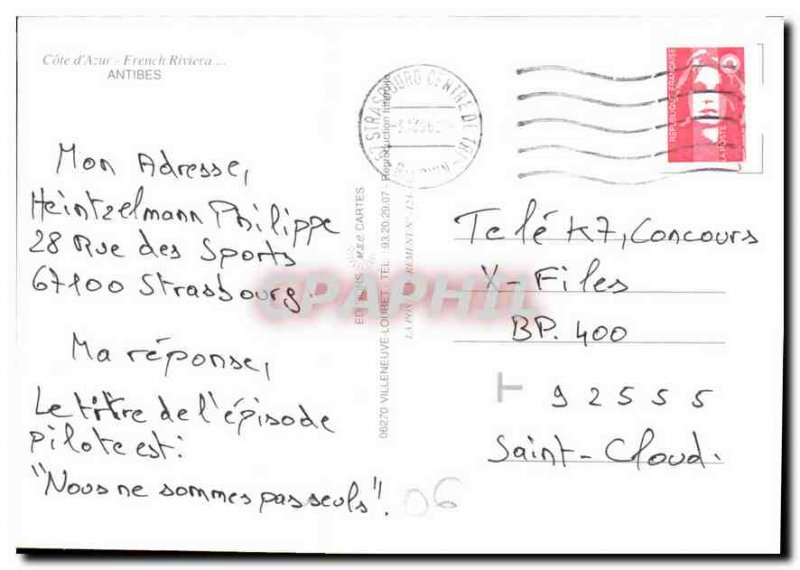 Côte d'Azur - French Riviera ...
ANTIBES
Mon Adresse,
Heintzelmann Philippe
28 Rue des Sports
67100 Strasbourg.
Ma réponse,
Le titre de l'épisode
pilote est:
"Nous ne sommes pas seuls".
06
06270 VILLENEUVE-LOUBET - TEL. 93.20.29.07 - Reproduction interdite
EDITIONS MSC CARTES
STRASBOURG CENTRE DE TRI
BAS RHIN
REPUBLIQUE FRANÇAISE
LA POSTE
CPAPHIL
Telé K7, Concours
X-Files
BP. 400
T
92555
Saint-Cloud.